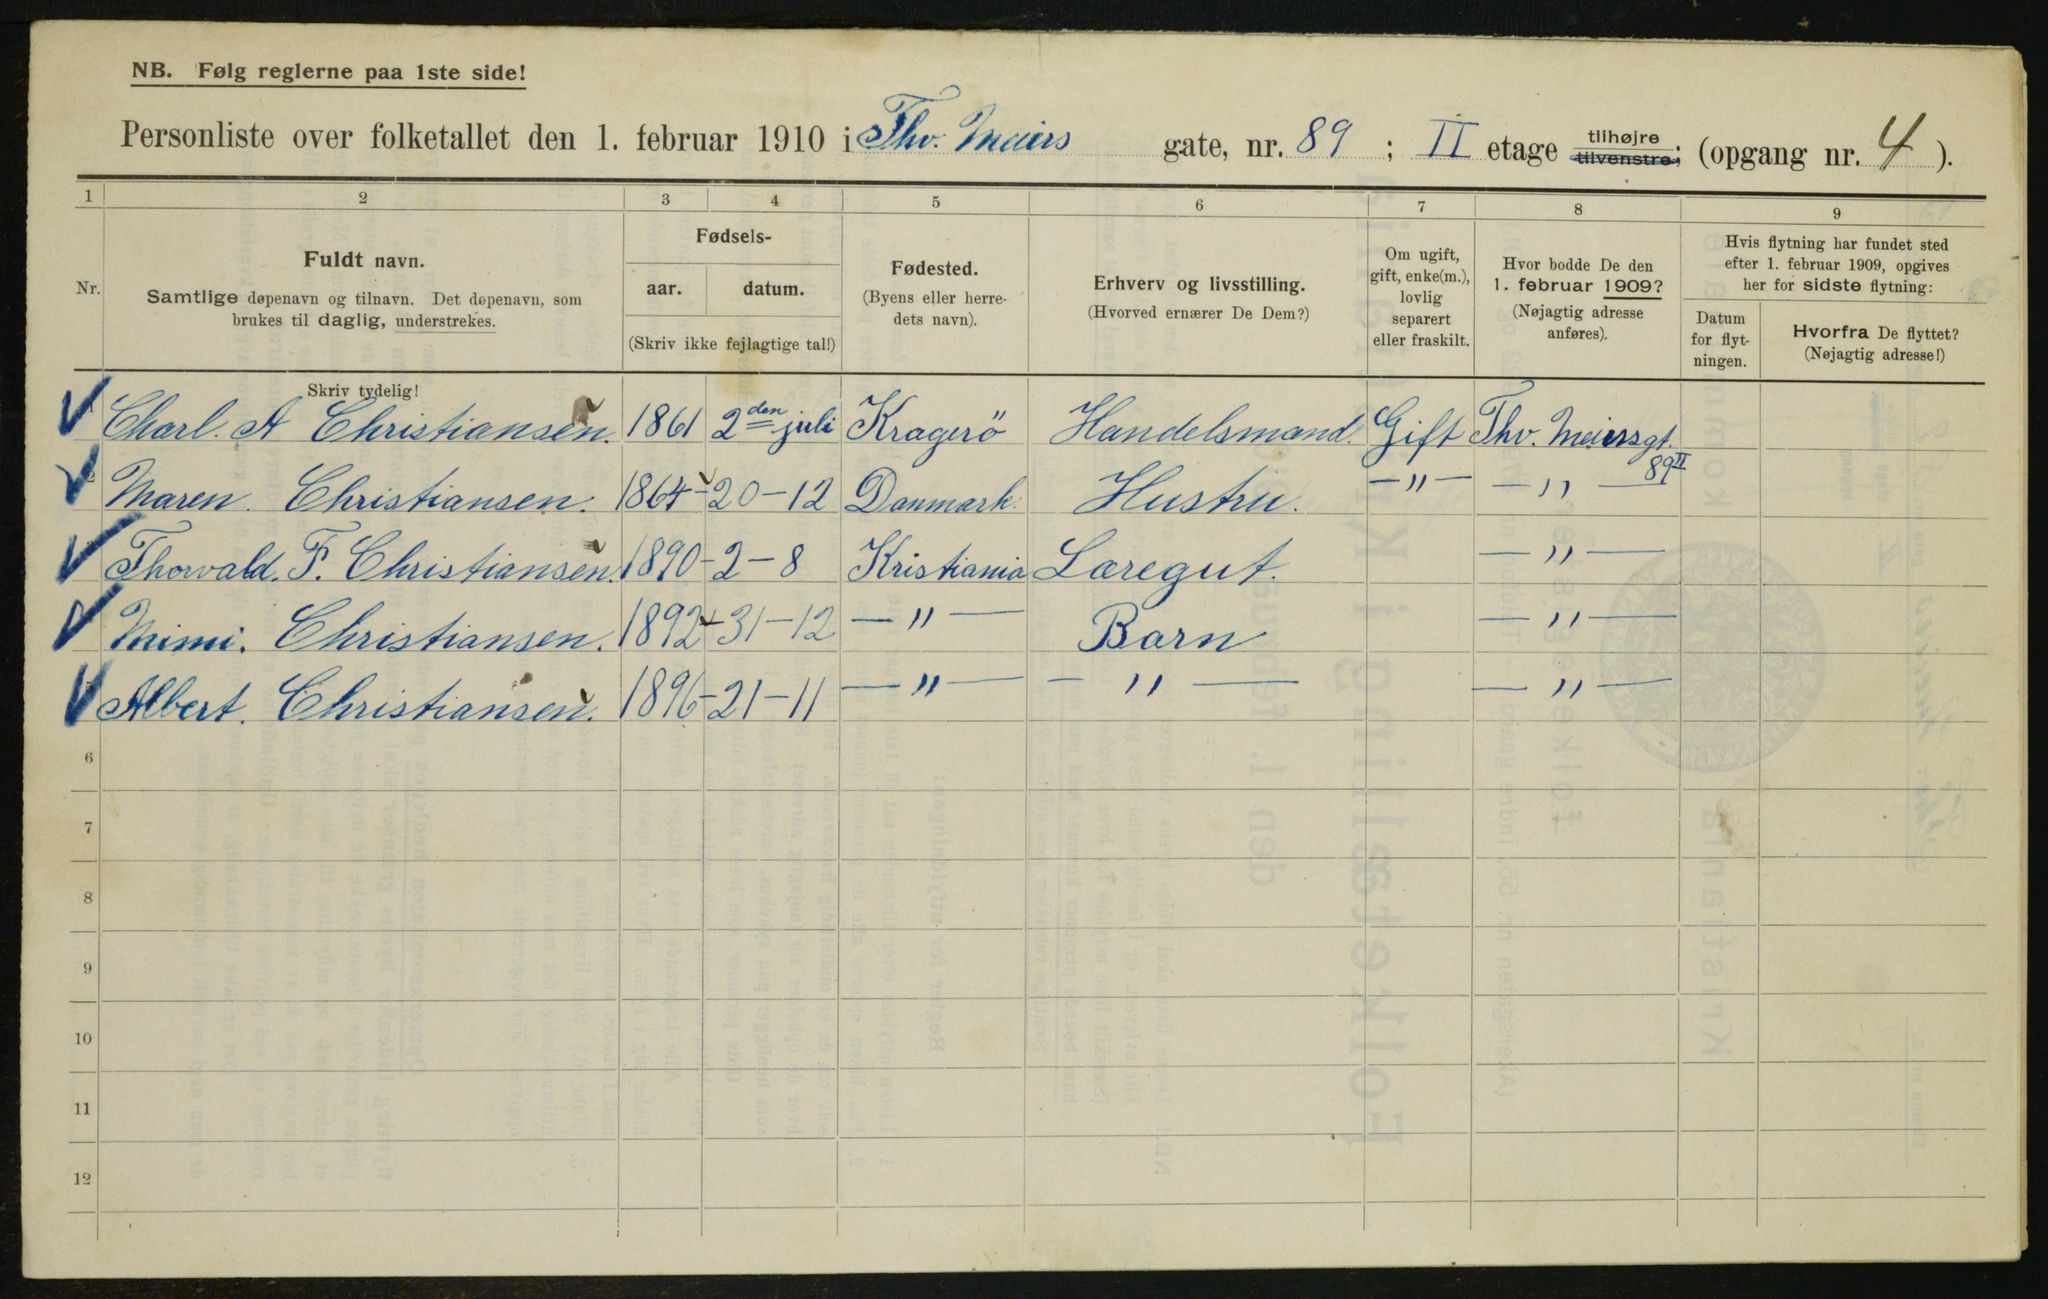 NB. Følg reglerne paa 1ste side!
Personliste over folketallet den 1. februar 1910 i Thv. Meiers gate, nr. 89 ; II etage tilhøjre tilvenstre; (opgang nr. 4 ).
1 2 3 4 5 6 7 8 9
Nr.
Fuldt navn.
Samtlige døpenavn og tilnavn. Det døpenavn, som
brukes til daglig, understrekes.
Fødsels-
aar. datum.
(Skriv ikke fejlagtige tal!)
Fødested.
(Byens eller herre-
dets navn).
Erhverv og livsstilling.
(Hvorved ernærer De Dem?)
Om ugift,
gift, enke(m.),
lovlig
separert
eller fraskilt.
Hvor bodde De den
1. februar 1909?
(Nøjagtig adresse
anføres).
Hvis flytning har fundet sted
efter 1. februar 1909, opgives
her for sidste flytning:
Datum
for flyt-
ningen.
Hvorfra De flyttet?
(Nøjagtig adresse!)
Skriv tydelig!
Charl. A Christiansen. 1861 2den juli Kragerö Handelsmand. Gift Thv. Meiersgt. 89 II
Maren. Christiansen. 1864 - 20 - 12 Danmark. Hustru. — " — — " —
Thorvald. F. Christiansen. 1890 - 2 - 8 Kristiania Læregut. — " —
Mimi. Christiansen. 1892 - 31 - 12 — " — Barn — " —
Albert. Christiansen. 1896 - 21 - 11 — " — — " — — " —
6
7
8
9
10
11
12